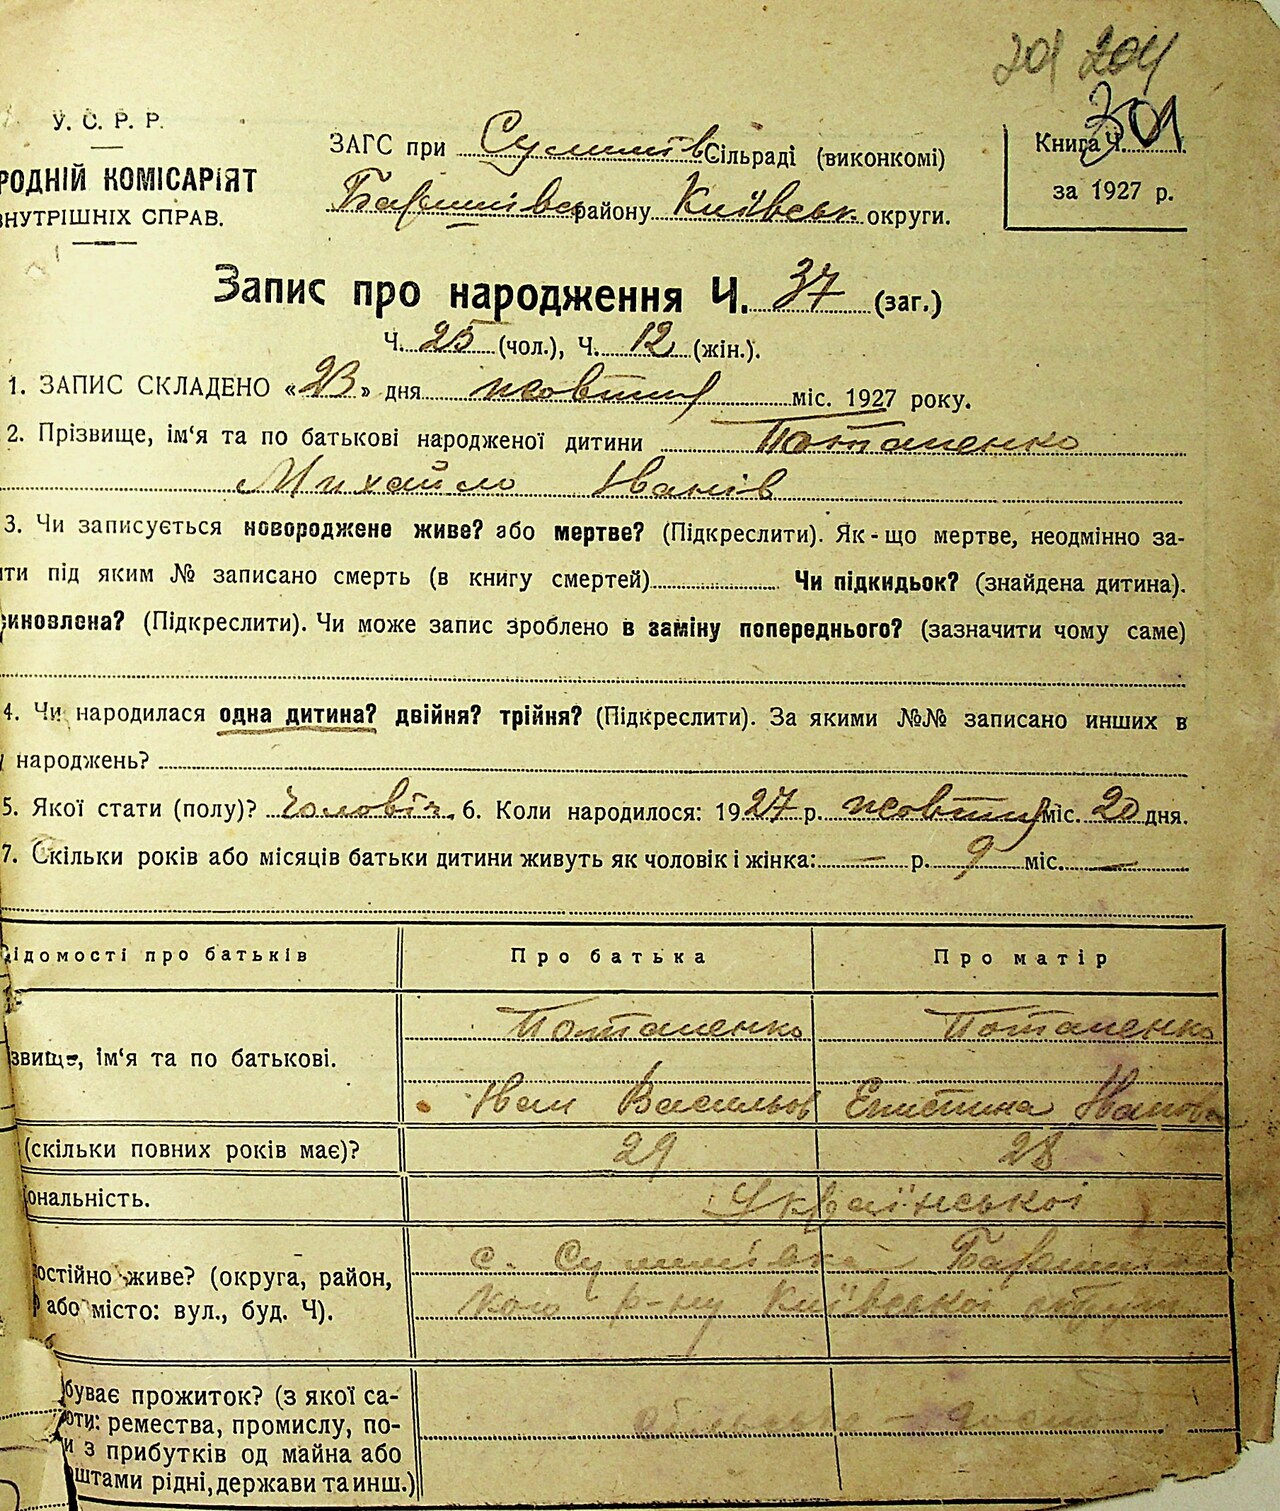 201 204
301
У. С. Р. Р.
РОДНІЙ КОМІСАРІЯТ
ВНУТРІШНІХ СПРАВ.
ЗАГС при Сулимів Сільраді (виконкомі)
Баришівськ району Київськ округи.
Книга Ч.
за 1927 р.
Запис про народження Ч. 37 (заг.)
Ч. 25 (чол.), Ч. 12 (жін.).
1. ЗАПИС СКЛАДЕНО «23» дня жовтня міс. 1927 року.
2. Прізвище, ім‘я та по батькові народженої дитини Потапенко
Михайло Іванів
3. Чи записується новороджене живе? або мертве? (Підкреслити). Як-що мертве, неодмінно за-
ти під яким № записано смерть (в книгу смертей) Чи підкидьок? (знайдена дитина).
иновлена? (Підкреслити). Чи може запис зроблено в заміну попереднього? (зазначити чому саме)
4. Чи народилася одна дитина? двійня? трійня? (Підкреслити). За якими №№ записано инших в
народжень?
5. Якої стати (полу)? чоловіч. 6. Коли народилося: 1927 р. жовтня міс. 20 дня.
7. Скільки років або місяців батьки дитини живуть як чоловік і жінка: — р. 9 міс. —
ідомості про батьків Про батька Про матір
Потапенко Потапенко
звище, ім‘я та по батькові.
Іван Васильов Епистина Іванова
(скільки повних років має)? 29 28
ональність. Української
остійно живе? (округа, район, с. Сулимівка Баришівсь
або місто: вул., буд. Ч). кого р-ну Київської округи
буває прожиток? (з якої са-
оти: ремества, промислу, по-
и з прибутків од майна або
штами рідні, держави та инш.)